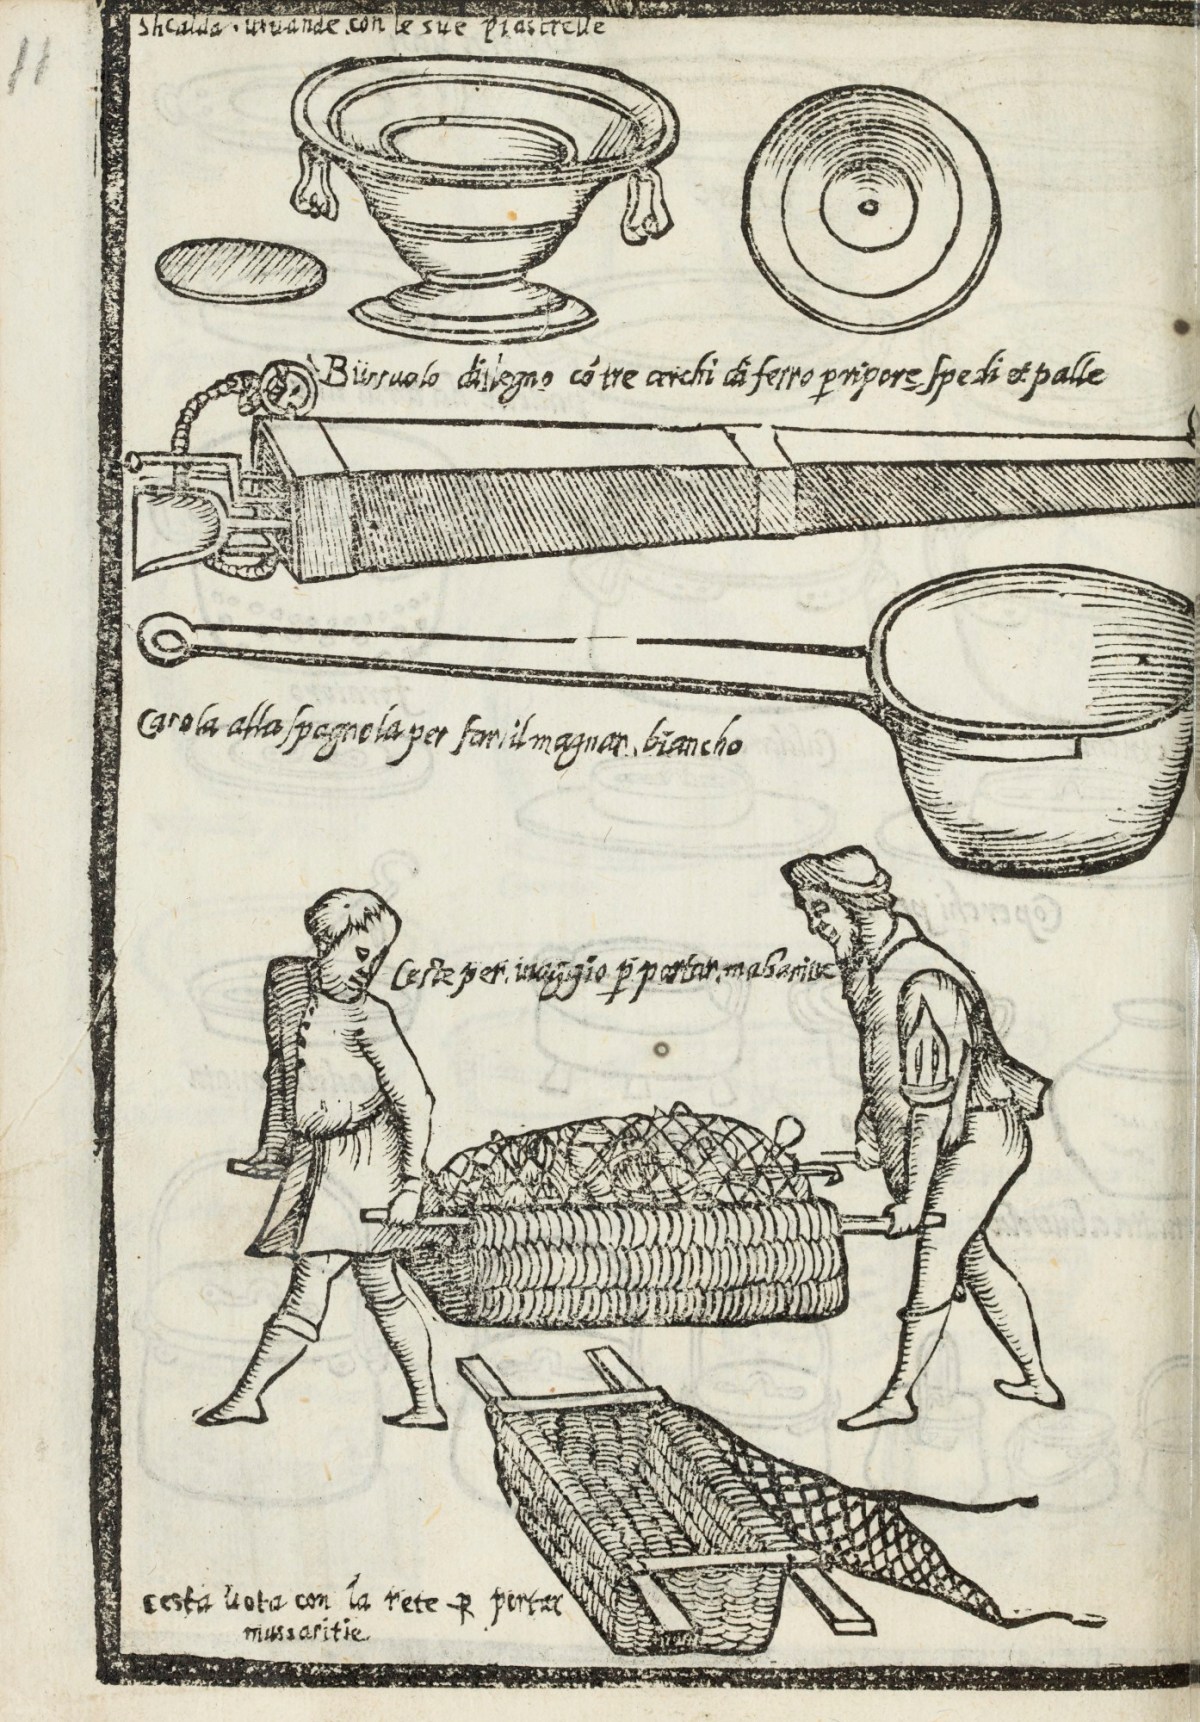 11
shcalda uiuande con le sue piastrelle
Bussuolo di legno cō tre cerchi di ferro p riporre spedi et palle
Carola alla spagnola per far il magnar biancho
Ceste per uiaggio p portar
cesta uota con la rete p portar
mussaritie